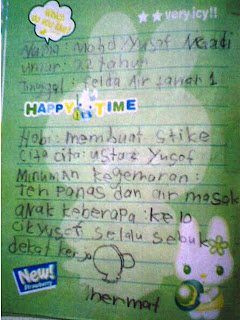 ★★veryicy!!
Nama: Mohd Yusof Meadi
umur: 22 tahun
Tinggal: felda Air tawar 1
HAPPY TIME
Hobi: membuat Stike
Cita cita: ustaz Yusof
Minuman kegemaran:
Teh Panas dan air masak
anak keberapa: ke 10
cikyusof selalu sebuk
dekat kerja
New!
Strawberry
hermat